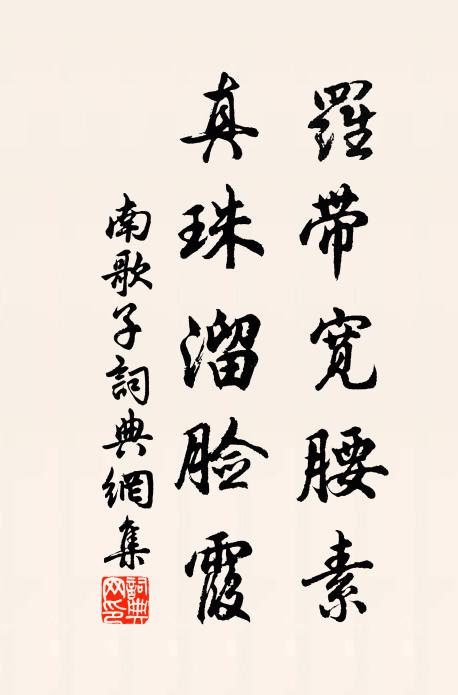 羅帶寬腰素
真珠溜脸霞
南歌子詞典網集
詞典网印